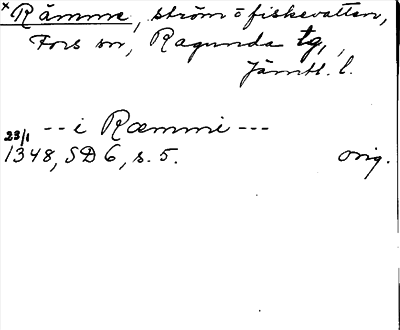 × Rämne, ström o fiskevatten,
Fors sn, Ragunda tg,
Jämtl. l.
-- i Ræmni ---
23/1
1348, SD 6, s. 5. orig.